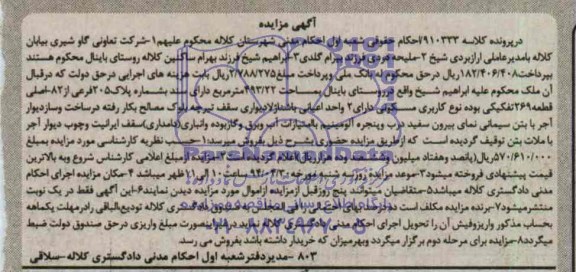 آگهی مزایده
درپرونده کلاسه ۹۱۰۳۳۳/احکام حقوقی شعبه اول احکام مدنی شهرستان کلاله محکوم علیهم۱-شرکت تعاونی گاو شیری بیابان
کلاله بامدیرعاملی ارازبردی شیخ ۲-ملیحه دردی فرزند بهرام گلدی۳-ابراهیم شیخ فرزند بهرام ساکنین کلاله روستای بایتدال محکوم هستند
بپرداخت۱۸۲/۴۰۶/۴۰۸ریال درحق محکوم له بانک ملی وپرداخت مبلغ۲/۷۸۸/۲۷۵ریال بابت هزینه های اجرایی درحق دولت که درقبال
آن ملک محکوم علیه ابراهیم شیخ واقع درروستای بایتدال بمساحت ۴۹۳/۲۲مترمربع دارای سند بشماره پلاک۲۰۵فرعی از۸۲-اصلی
قطعه۲۶۹تفکیکی بوده نوع کاربری مسکونی دارای۲ واحد اعیانی باشناژلادیواری سقف تیرچه بلوک مصالح بکار رفته درساخت وسازدیوار
آجر با بتن سیمانی نمای بیرون سفید درب وپنجره آلومینیم باامتیازات آب وبرق وگازبوده وانباری(دامداری)سقف ایرانیت وچوب دیوار آجر
با ملات بتن توقیف گردیده است که ازطریق مزایده حضوری بشرح ذیل بفروش میرسد۱-حسب نظریه کارشناسی مورد مزایده بمبلغ
۵۷۰/۶۱۰/۰۰۰ریال(پانصد وهفتاد میلیون وششصد وده هزارریال)اعلام گردیده است۲-مزایده از مبلغ اعلامی کارشناس شروع وبه بالاترین
قیمت پیشنهادی فروخته میشود۳-موعد مزایده روزسه شنبه مورخه ۹۴/۴/۳۰ساعت ۱۰ الی ۱۱ظهر میباشد ۴-مکان مزایده اجرای احکام
مدنی دادگستری کلاله میباشد۵-متقاضیان میتوانند پنج روزقبل ازمزایده ازاموال مورد مزایده دیدن نمایند۶-این آگهی فقط در یک نوبت
منتشرمیشود۷-برنده مزایده مکلف است ده درصد بهای اموال را فی المجلس بحساب صندوق دادگستری کلاله تودیع،الباقی رادرمهلت یکماهه
بحساب مذکور واریزوفیش آن را تحویل اجرای احکام مدنی دادگستری کلاله نماید درغیراینصورت مبلغ واریزی درحق صندوق دولت ضبط
میگردد۸-مزایده برای مرحله دوم برگزار میگردد وبهرمیزان که خریدار داشته باشد بفروش می رسد.
۸۰۳ -مدیردفترشعبه اول احکام مدنی دادگستری کلاله-سلاقی